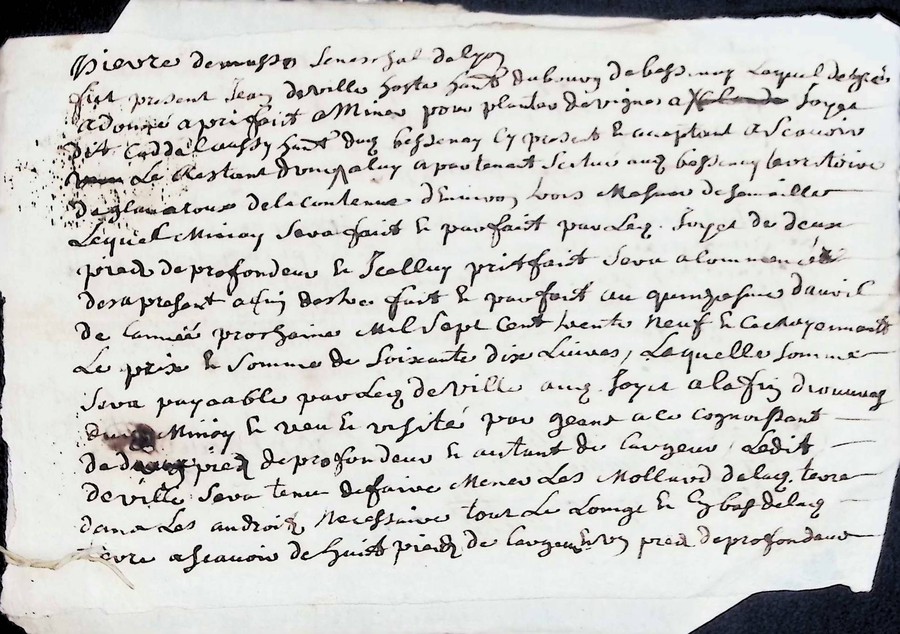 Pierre demasso seneschal de lyon
fist present Jean deville hoste hant du bourg de bessenay Lequel de gré
a donné a prifait a Miner pour planter de vignes a foyet
dit hant dud bessenay Cy present & aceptant a Scavoir
Le Restant d'une apartenant Scitue aud bessenay terretoire
de glanatoux de la contenue d'Environ trois Mesures de semailles
Lequel Minoy sera fait & parfait par Led. foyet de deux
pieds de profondeur & Icelluy prifait sera a commencer
des a present afin destre fait & parfait au quinzesme d'avril
de l'année prochaine Mil Sept Cent trente Neuf & ce moyennant
Le prix & Somme de Soixante dix Livres, Laquelle somme
sera payaable par Led deville aud. foyet a la fin d'rouvrag
dud Minoy & veu & visité par geans a ce cognoissant
de deux pieds de profondeur & autant de largeur, Ledit
deville sera tenu de faire Mener Les Mollard de lad. terre
dans Les androis Necessaire tout Le Longe & Cy bas de lad
terre a scavoir de huit pieds de largeur & un pied de profondeur